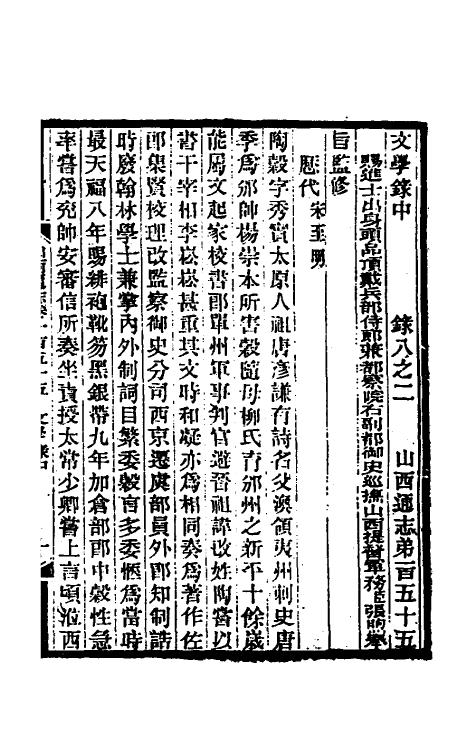 文學錄中　錄八之二　山西通志弟一百五十五
賜進士出身頭品頂戴兵部侍郎兼都察院右副都御史巡撫山西提督軍務臣張煦奉
旨監修
歷代　宋至明
陶穀字秀實太原人祖唐彥謙有詩名父澳領夷州刺史唐
季爲邠帥楊崇本所害穀隨母柳氏育邠州之新平十餘歲
能屬文起家校書郎單州軍事判官避晉祖諱改姓陶嘗以
書干宰相李崧崧甚重其文時和凝亦爲相同奏爲著作佐
郎集賢校理改監察御史分司西京遷虞部員外郎知制誥
時廢翰林學士兼掌內外制詞目繁委穀言多委愜爲當時
最天福八年賜緋袍靴笏黑銀帶九年加倉部郎中穀性急
率嘗爲兗帥安審信所奏坐責授太常少卿嘗上言頃涖西